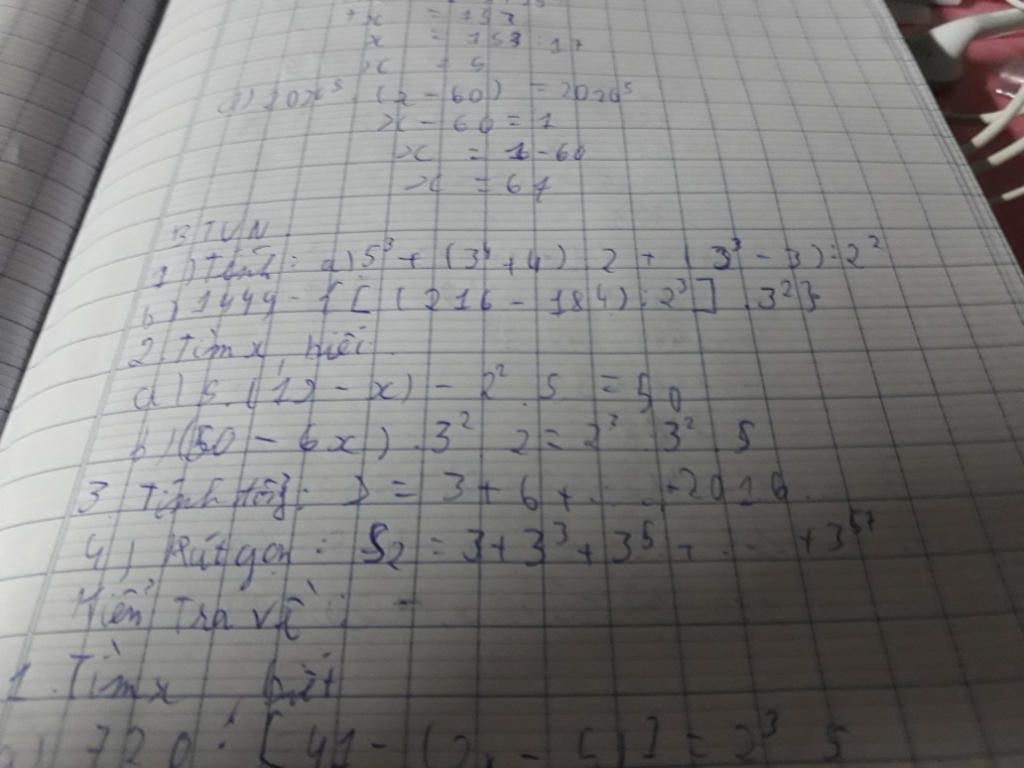 x = 153
x = 153 : 17
x = 5
d) 2026⁵ . (x - 60) = 2026⁵
x - 60 = 1
x = 1 - 60
x = 61
BTVN
1) Tính: a) 5³ + (3⁴ + 4) 2 + (3³ - 3) : 2²
b) 1449 - {[(216 - 184) : 2³] . 3²}
2. Tìm x, biết
a) 5 . (12 - x) - 2² . 5 = 50
b) (50 - 6x) . 3² 2 = 2³ . 3² 5
3. Tính tổng: S = 3 + 6 + ... + 2016
4) Rút gọn: S₂ = 3 + 3³ + 3⁵ + ... + 3⁵⁷
Kiểm tra vở:
1. Tìm x, biết
a) 720 : [41 - (2x - 5)] = 2³ 5